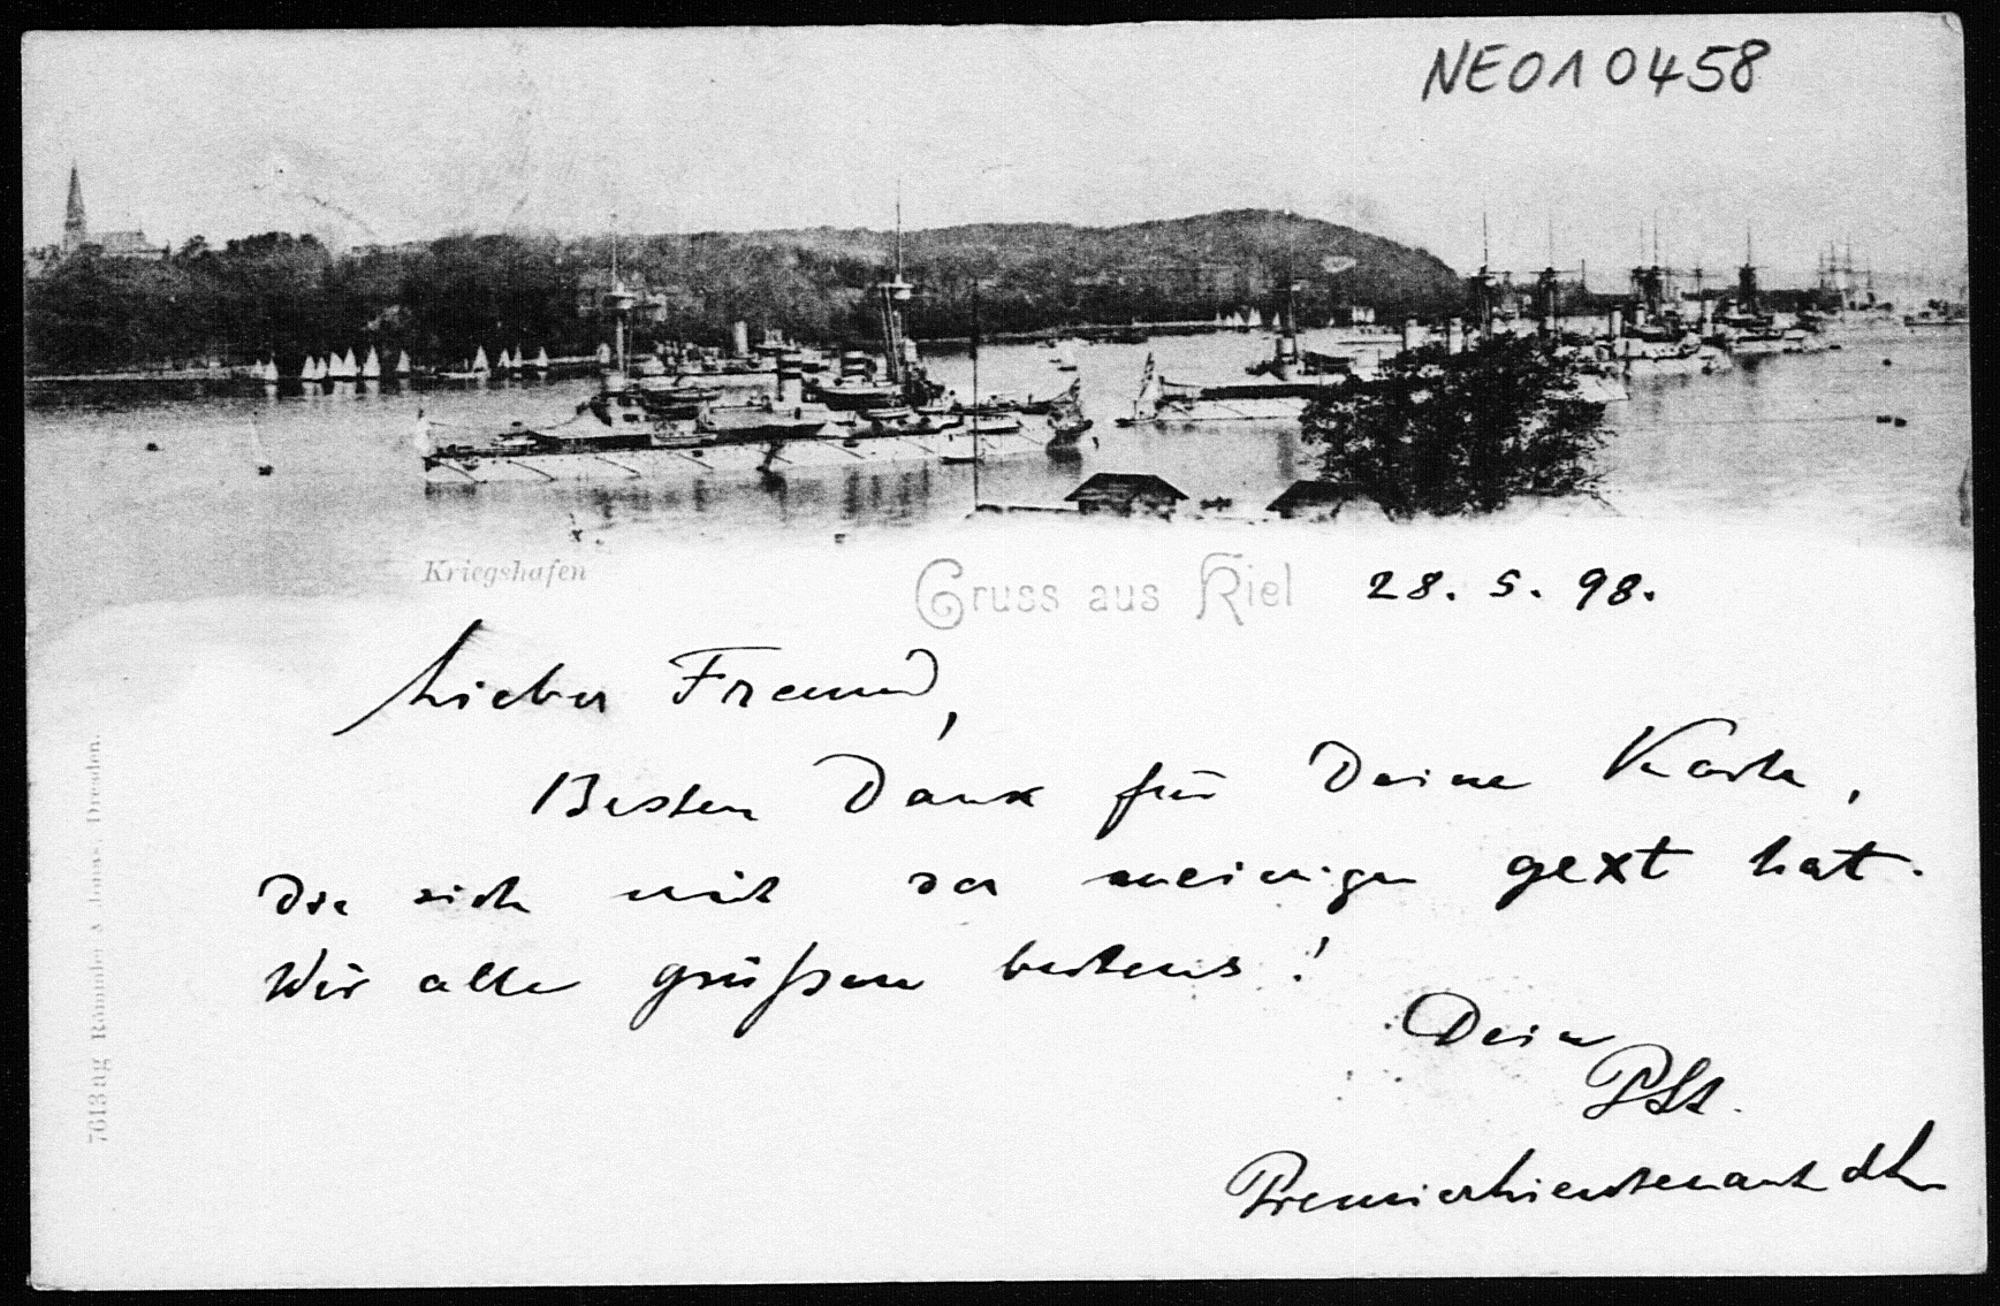 NEO10458
Kriegshafen
Gruss aus Kiel 28. 5. 98.
Lieber Freund,
Besten Dank für Deine Karte,
die sich mit der meinigen gext hat.
Wir alle grüßen bestens!
Dein
PSt.
Premierlieutenant dL
7613 ag Römmler & Jonas, Dresden.